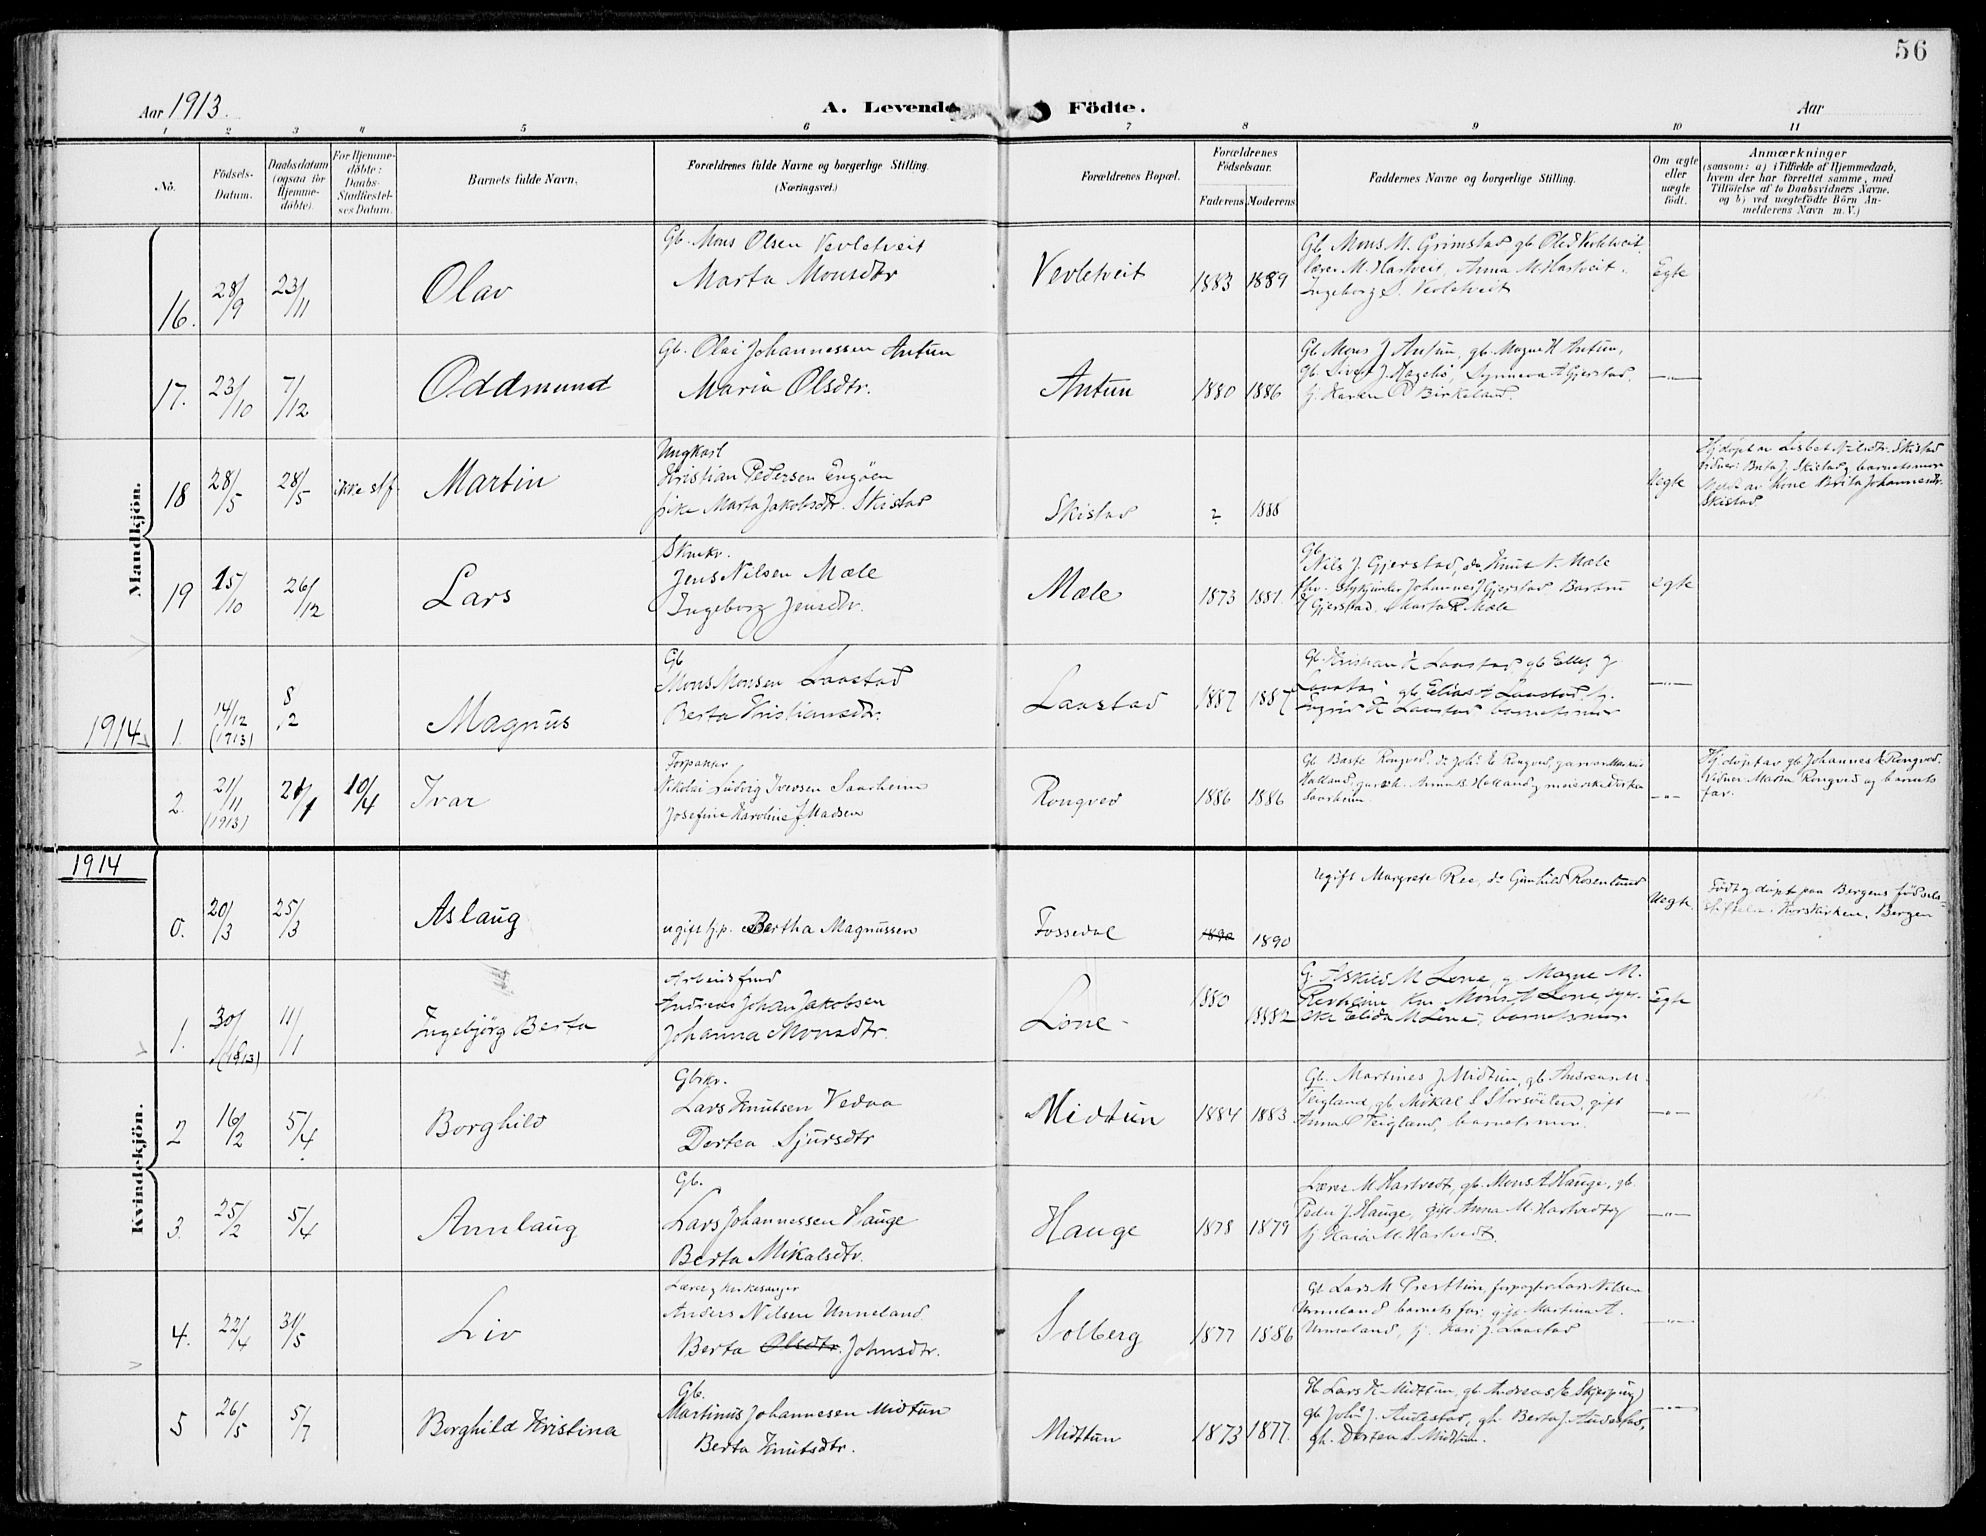 56
Aar 1913.
A. Levende Födte.
Aar
1 2 3 4 5 6 7 8 9 10 11
No.
Födsels-Datum.
Daabsdatum (ogsaa for Hjemme-döbte).
For Hjemme-döbte: Daabs-Stadfæstel-ses Datum.
Barnets fulde Navn.
Forældrenes fulde Navne og borgerlige Stilling. (Næringsvei.)
Forældrenes Bopæl.
Forældrenes Födselsaar.
Faderens Moderens
Faddernes Navne og borgerlige Stilling.
Om ægte eller uægte födt.
Anmærkninger
(saasom: a) i Tilfælde af Hjemmedaab, hvem der har forrettet samme, med Tilföielse af to Daabsvidners Navne, og b) ved uægtefödte Börn An-melderens Navn m. V.)
Mandkjön.
16. 28/9 23/11 Olav
Gb. Mons Olsen Vevletveit
Marta Monsdtr
Vevletveit 1883 1889
Gb. Mons M. Grimstad gb Ole Vevletveit
lærer M. Hartveit, Anna M. Hartveit
Ingeborg S. Vevletveit
Egte
17. 23/10 7/12 Oddmund
Gb. Olai Johannessen Antun
Maria Olsdtr.
Antun 1880 1886
Gb Mons J Antun, gb. Magne H Antun,
gb. Sivert J Hagebö, Synneva A Gjerstad,
Karen Birkeland.
—„—
18 28/5 28/5 ikke stf. Martin
Ungkarl
Kristian Pedersen Engöen
pike Marta Jakobsdtr. Skistad
Skistad ? 1888
Uegte
Hj.döpt av Lisbet Nilsdtr. Skistad
vidner: Brita J. Skistad og barnets mor
Meldt av kone Brita Johannesdtr.
Skistad
19 15/10 26/12 Lars
Jens Nilsen Mæle
Ingeborg Jensdtr.
Mæle 1873 1881.
Gb
Nils J. Gjerstad, do. Knut N. Mæle
Johannes J Gjerstad Barbru
J Gjerstad, Marta Mæle
egte
1914
1. 14/12 (1913) 8/2 Magnus
Gb
Mons Monsen Laastad
Berta Kristiansdtr.
Laastad 1887 1887
Gb. Kristian K Laastad, gb
Laastad gb Elias A Laastad
K Laastad barnets mor
—„—
2. 21/11 (1913) 21/1 10/4 Ivar
Forpakter
Nikolai Ludvig Iversen Saarheim
Josefine Karoline J Madsen
Rongved 1886 1886
Saarheim.
—„—
Hj.döpt av gb. Johannes E Rongved.
vidner Rongved og barnets
far.
1914
Kvindekjön.
0. 20/3 25/3 Aslaug
ugift Bertha Magnussen
Fossedal 1890 1890
Ugift Margrete Ree, do Gunhild Rosenlund
Uegte.
Födt og döpt paa Bergens fødsels=
stiftelse. Korskirken, Bergen
1. 30/ (1913) 11/1 Ingebjörg Berta
Andreas Johan Jakobsen
Johanna Monsdtr.
Lone 1880 1882
G. Askild M Lone, g Magne M.
Revheim Mons A Lone,
Elida M Lone, barnets mor
Egte
2 16/2 5/4 Borghild
Gbrkr.
Lars Knutsen Vedaa
Dortea Sjursdtr
Midttun 1884 1883
Gb. Martines J Midtun, gb Andreas M
Teigland, gb. Mikal S Storsöilen, gift
Anna Teigland, barnets mor.
—„—
3. 25/2 5/4 Annlaug
Gb.
Lars Johannessen Hauge
Berta Mikalsdtr.
Hauge 1878 1879
Lærer M Hartvedt, gb. Mons A Hauge, gb.
Peder J. Hauge, gift Anna M. Hartvedt og
M. Hartvedt.
—„—
4. 22/4 31/5 Liv
Lærer og kirkesanger
Anders Nilsen Unneland
Berta Olsdtr. Johnsdtr.
Solberg 1877 1886
Gb Lars M Presttun, forpagter Lars Nilsen
Unneland barnets far, gift Martina A.
Unneland, Kari J. Laastad
—„—
5 26/5 5/7 Borghild Kristina
Gb.
Martinus Johannesen Midtun
Berta Knutsdtr.
Midttun 1873 1877.
Gb Lars K Midttun, gb Andreas E Skjerping
gb John J. Andestad, gh. Berta J. Andestad,
gh. Dortea S. Midttun.
—„—